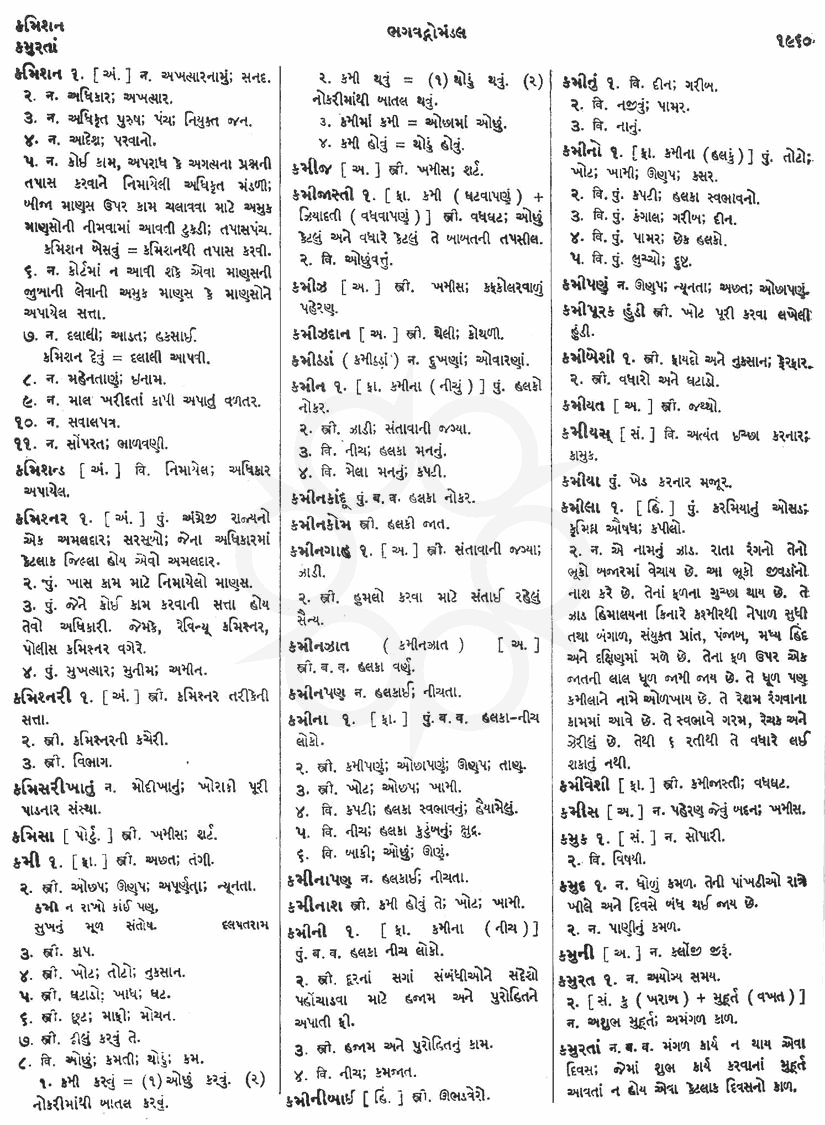 કમિશન
કમુરતાં
ભગવદ્ગોમંડલ
૧૯૬૦
કમિશન ૧. [ અં. ] ન. અખત્યારનામું; સનદ.
૨. ન. અધિકાર; અખત્યાર.
૩. ન. અધિકૃત પુરુષ; પંચ; નિયુક્ત જન.
૪. ન. આદેશ; પરવાનો.
૫. ન. કોઈ કામ, અપરાધ કે અગત્યના પ્રશ્નની
તપાસ કરવાને નિમાયેલી અધિકૃત મંડળી;
બીજા માણસ ઉપર કામ ચલાવવા માટે અમુક
માણસોની નીમવામાં આવતી ટુકડી; તપાસપંચ.
કમિશન બેસવું = કમિશનથી તપાસ કરવી.
૬. ન. કોર્ટમાં ન આવી શકે એવા માણસની
જુબાની લેવાની અમુક માણસ કે માણસોને
અપાયેલ સત્તા.
૭. ન. દલાલી; આડત; હકસાઈ.
કમિશન દેવું = દલાલી આપવી.
૮. ન. મહેનતાણું; ઇનામ.
૯. ન. માલ ખરીદતાં કાપી અપાતું વળતર.
૧૦. ન. સવાલપત્ર.
૧૧. ન. સોંપરત; ભાળવણી.
કમિશન્ડ [ અં. ] વિ. નિમાયેલ; અધિકાર
અપાયેલ.
કમિશ્નર ૧. [ અં. ] પું. અંગ્રેજી રાજ્યનો
એક અમલદાર; સરસૂબો; જેના અધિકારમાં
કેટલાક જિલ્લા હોય એવો અમલદાર.
૨. પું. ખાસ કામ માટે નિમાયેલો માણસ.
૩. પું. જેને કોઈ કામ કરવાની સત્તા હોય
તેવો અધિકારી. જેમકે, રેવિન્યૂ કમિશ્નર,
પોલીસ કમિશ્નર વગેરે.
૪. પું. મુખત્યાર; મુનીમ; અમીન.
કમિશ્નરી ૧. [ અં. ] સ્ત્રી. કમિશ્નર તરીકેની
સત્તા.
૨. સ્ત્રી. કમિશ્નરની કચેરી.
૩. સ્ત્રી. વિભાગ.
કમિસરીખાતું ન. મોદીખાનું; ખોરાકી પૂરી
પાડનાર સંસ્થા.
કમિસા [ પોર્ટુ. ] સ્ત્રી. ખમીસ; શર્ટ.
કમી ૧. [ ફા. ] સ્ત્રી. અછત; તંગી.
૨. સ્ત્રી. ઓછપ; ઊણપ; અપૂર્ણતા; ન્યૂનતા.
કમી ન રાખો કાંઈ પણ,
સુખનું મૂળ સંતોષ. દલપતરામ
૩. સ્ત્રી. કાપ.
૪. સ્ત્રી. ખોટ; તોટો; નુકસાન.
૫. સ્ત્રી. ઘટાડો; ખાધ; ઘટ.
૬. સ્ત્રી. છૂટ; માફી; મોચન.
૭. સ્ત્રી. ઢીલું કરવું તે.
૮. વિ. ઓછું; કમતી; થોડું; કમ.
૧. કમી કરવું = (૧) ઓછું કરવું. (૨)
નોકરીમાંથી બાતલ કરવું.
૨. કમી થવું = (૧) થોડું થવું. (૨)
નોકરીમાંથી બાતલ થવું.
૩. કમીમાં કમી = ઓછામાં ઓછું.
૪. કમી હોવું = થોડું હોવું.
કમીજ [ અ. ] સ્ત્રી. ખમીસ; શર્ટ.
કમીજાસ્તી ૧. [ ફા. કમી ( ઘટવાપણું ) +
ઝિયાદતી ( વધવાપણું ) ] સ્ત્રી. વધઘટ; ઓછું
કેટલું અને વધારે કેટલું તે બાબતની તપસીલ.
૨. વિ. ઓછુંવત્તું.
કમીઝ [ અ. ] સ્ત્રી. ખમીસ; કફકોલરવાળું
પહેરણ.
કમીઝદાન [ અ. ] સ્ત્રી. થેલી; કોથળી.
કમીડડાં ( કમીડડાં ) ન. દુખણાં; ઓવારણાં.
કમીન ૧. [ ફા. કમીના ( નીચું ) ] પું. હલકો
નોકર.
૨. સ્ત્રી. ઝાડી; સંતાવાની જગ્યા.
૩. વિ. નીચ; હલકા મનનું.
૪. વિ. મેલા મનનું; કપટી.
કમીનકાંદૂ પું. બ. વ. હલકા નોકર.
કમીનકોમ સ્ત્રી. હલકી જાત.
કમીનગાહ ૧. [ અ. ] સ્ત્રી. સંતાવાની જગ્યા;
ઝાડી.
૨. સ્ત્રી. હુમલો કરવા માટે સંતાઈ રહેલું
સૈન્ય.
કમીનઝાત ( કમીનઝાત ) [ અ. ]
સ્ત્રી. બ. વ. હલકા વર્ણ.
કમીનપણ ન. હલકાઈ; નીચતા.
કમીના ૧. [ ફા. ] પું. બ. વ. હલકા-નીચ
લોકો.
૨. સ્ત્રી. કમીપણું; ઓછાપણું; ઊણપ; તાણ.
૩. સ્ત્રી. ખોટ; ઓછપ; ખામી.
૪. વિ. કપટી; હલકા સ્વભાવનું; હૈયામેલું.
૫. વિ. નીચ; હલકા કુટુંબનું; ક્ષુદ્ર.
૬. વિ. બાકી; ઓછું; ઊણું.
કમીનાપણ ન. હલકાઈ; નીચતા.
કમીનાશ સ્ત્રી. કમી હોવું તે; ખોટ; ખામી.
કમીની ૧. [ ફા. કમીના ( નીચ ) ]
પું. બ. વ. હલકા નીચ લોકો.
૨. સ્ત્રી. દૂરનાં સગાં સંબંધીઓને સંદેશો
પહોંચાડવા માટે હજામ અને પુરોહિતને
અપાતી ફી.
૩. સ્ત્રી. હજામ અને પુરોહિતનું કામ.
૪. વિ. નીચ; કમજાત.
કમીનીબાઈ [ હિં. ] સ્ત્રી. ઊભડવેરો.
કમીનું ૧. વિ. દીન; ગરીબ.
૨. વિ. નજીવું; પામર.
૩. વિ. નાનું.
કમીનો ૧. [ ફા. કમીના ( હલકું ) ] પું. તોટો;
ખોટ; ખામી; ઊણપ; કસર.
૨. વિ. પું. કપટી; હલકા સ્વભાવનો.
૩. વિ. પું. કંગાલ; ગરીબ; દીન.
૪. વિ. પું. પામર; છેક હલકો.
૫. વિ. પું. લુચ્ચો; દુષ્ટ.
કમીપણું ન. ઊણપ; ન્યૂનતા; અછત; ઓછાપણું.
કમીપૂરક હુંડી સ્ત્રી. ખોટ પૂરી કરવા લખેલી
હુંડી.
કમીબેશી ૧. સ્ત્રી. ફાયદો અને નુકસાન; ફેરફાર.
૨. સ્ત્રી. વધારો અને ઘટાડો.
કમીયત [ અ. ] સ્ત્રી. જથ્થો.
કમીયસ્ [ સં. ] વિ. અત્યંત ઇચ્છા કરનાર;
કામુક.
કમીયા પું. ખેડ કરનાર મજૂર.
કમીલા ૧. [ હિં. ] પું. કરમિયાનું ઓસડ;
કૃમિઘ્ન ઔષધ; કપીલો.
૨. ન. એ નામનું ઝાડ. રાતા રંગનો તેનો
ભૂકો બજારમાં વેચાય છે. આ ભૂકો જીવડાંનો
નાશ કરે છે. તેનાં ફળના ગુચ્છા થાય છે. તે
ઝાડ હિમાલયના કિનારે કશ્મીરથી નેપાળ સુધી
તથા બંગાળ, સંયુક્ત પ્રાંત, પંજાબ, મધ્ય હિંદ
અને દક્ષિણમાં મળે છે. તેના ફળ ઉપર એક
જાતની લાલ ધૂળ જામી જાય છે. તે ધૂળ પણ
કમીલાને નામે ઓળખાય છે. તે રેશમ રંગવાના
કામમાં આવે છે. તે સ્વભાવે ગરમ, રેચક અને
ઝેરીલું છે. તેથી ૬ રતીથી તે વધારે લઈ
શકાતું નથી.
કમીવેશી [ ફા. ] સ્ત્રી. કમીજાસ્તી; વધઘટ.
કમીસ [ અ. ] ન. પહેરણ જેવું બદન; ખમીસ.
કમુક ૧. [ સં. ] ન. સોપારી.
૨. વિ. વિષયી.
કમુદ ૧. ન. ધોળું કમળ. તેની પાંખડીઓ રાત્રે
ખીલે અને દિવસે બંધ થઈ જાય છે.
૨. ન. પાણીનું કમળ.
કમુની [ અ. ] ન. કલોંજી જીરૂં.
કમુરત ૧. ન. અયોગ્ય સમય.
૨. [ સં. કુ ( ખરાબ ) + મુહૂર્ત ( વખત ) ]
ન. અશુભ મુહૂર્ત; અમંગળ કાળ.
કમુરતાં ન. બ. વ. મંગળ કાર્ય ન થાય એવા
દિવસ; જેમાં શુભ કાર્ય કરવાનાં મુહૂર્ત
આવતાં ન હોય એવા કેટલાક દિવસનો કાળ.